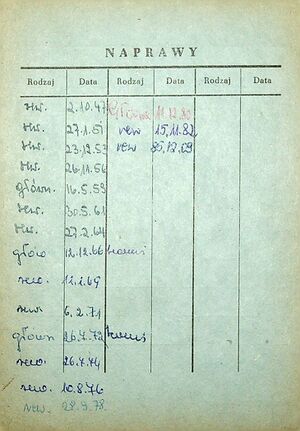 NAPRAWY
Rodzaj Data Rodzaj Data Rodzaj Data
rew. 2.10.47 Główna 11.12.80
rew. 27.1.51 rew 15.11.82
rew. 23.12.53 rew 85.12.09
rew. 26.11.56
główn. 16.5.59
rew. 30.5.61
rew. 27.2.64
główn 12.12.66
rew. 12.2.69
rew. 6.2.71
główn 26.7.72
rew. 26.7.74
rew. 10.8.76
rew. 28.9.78